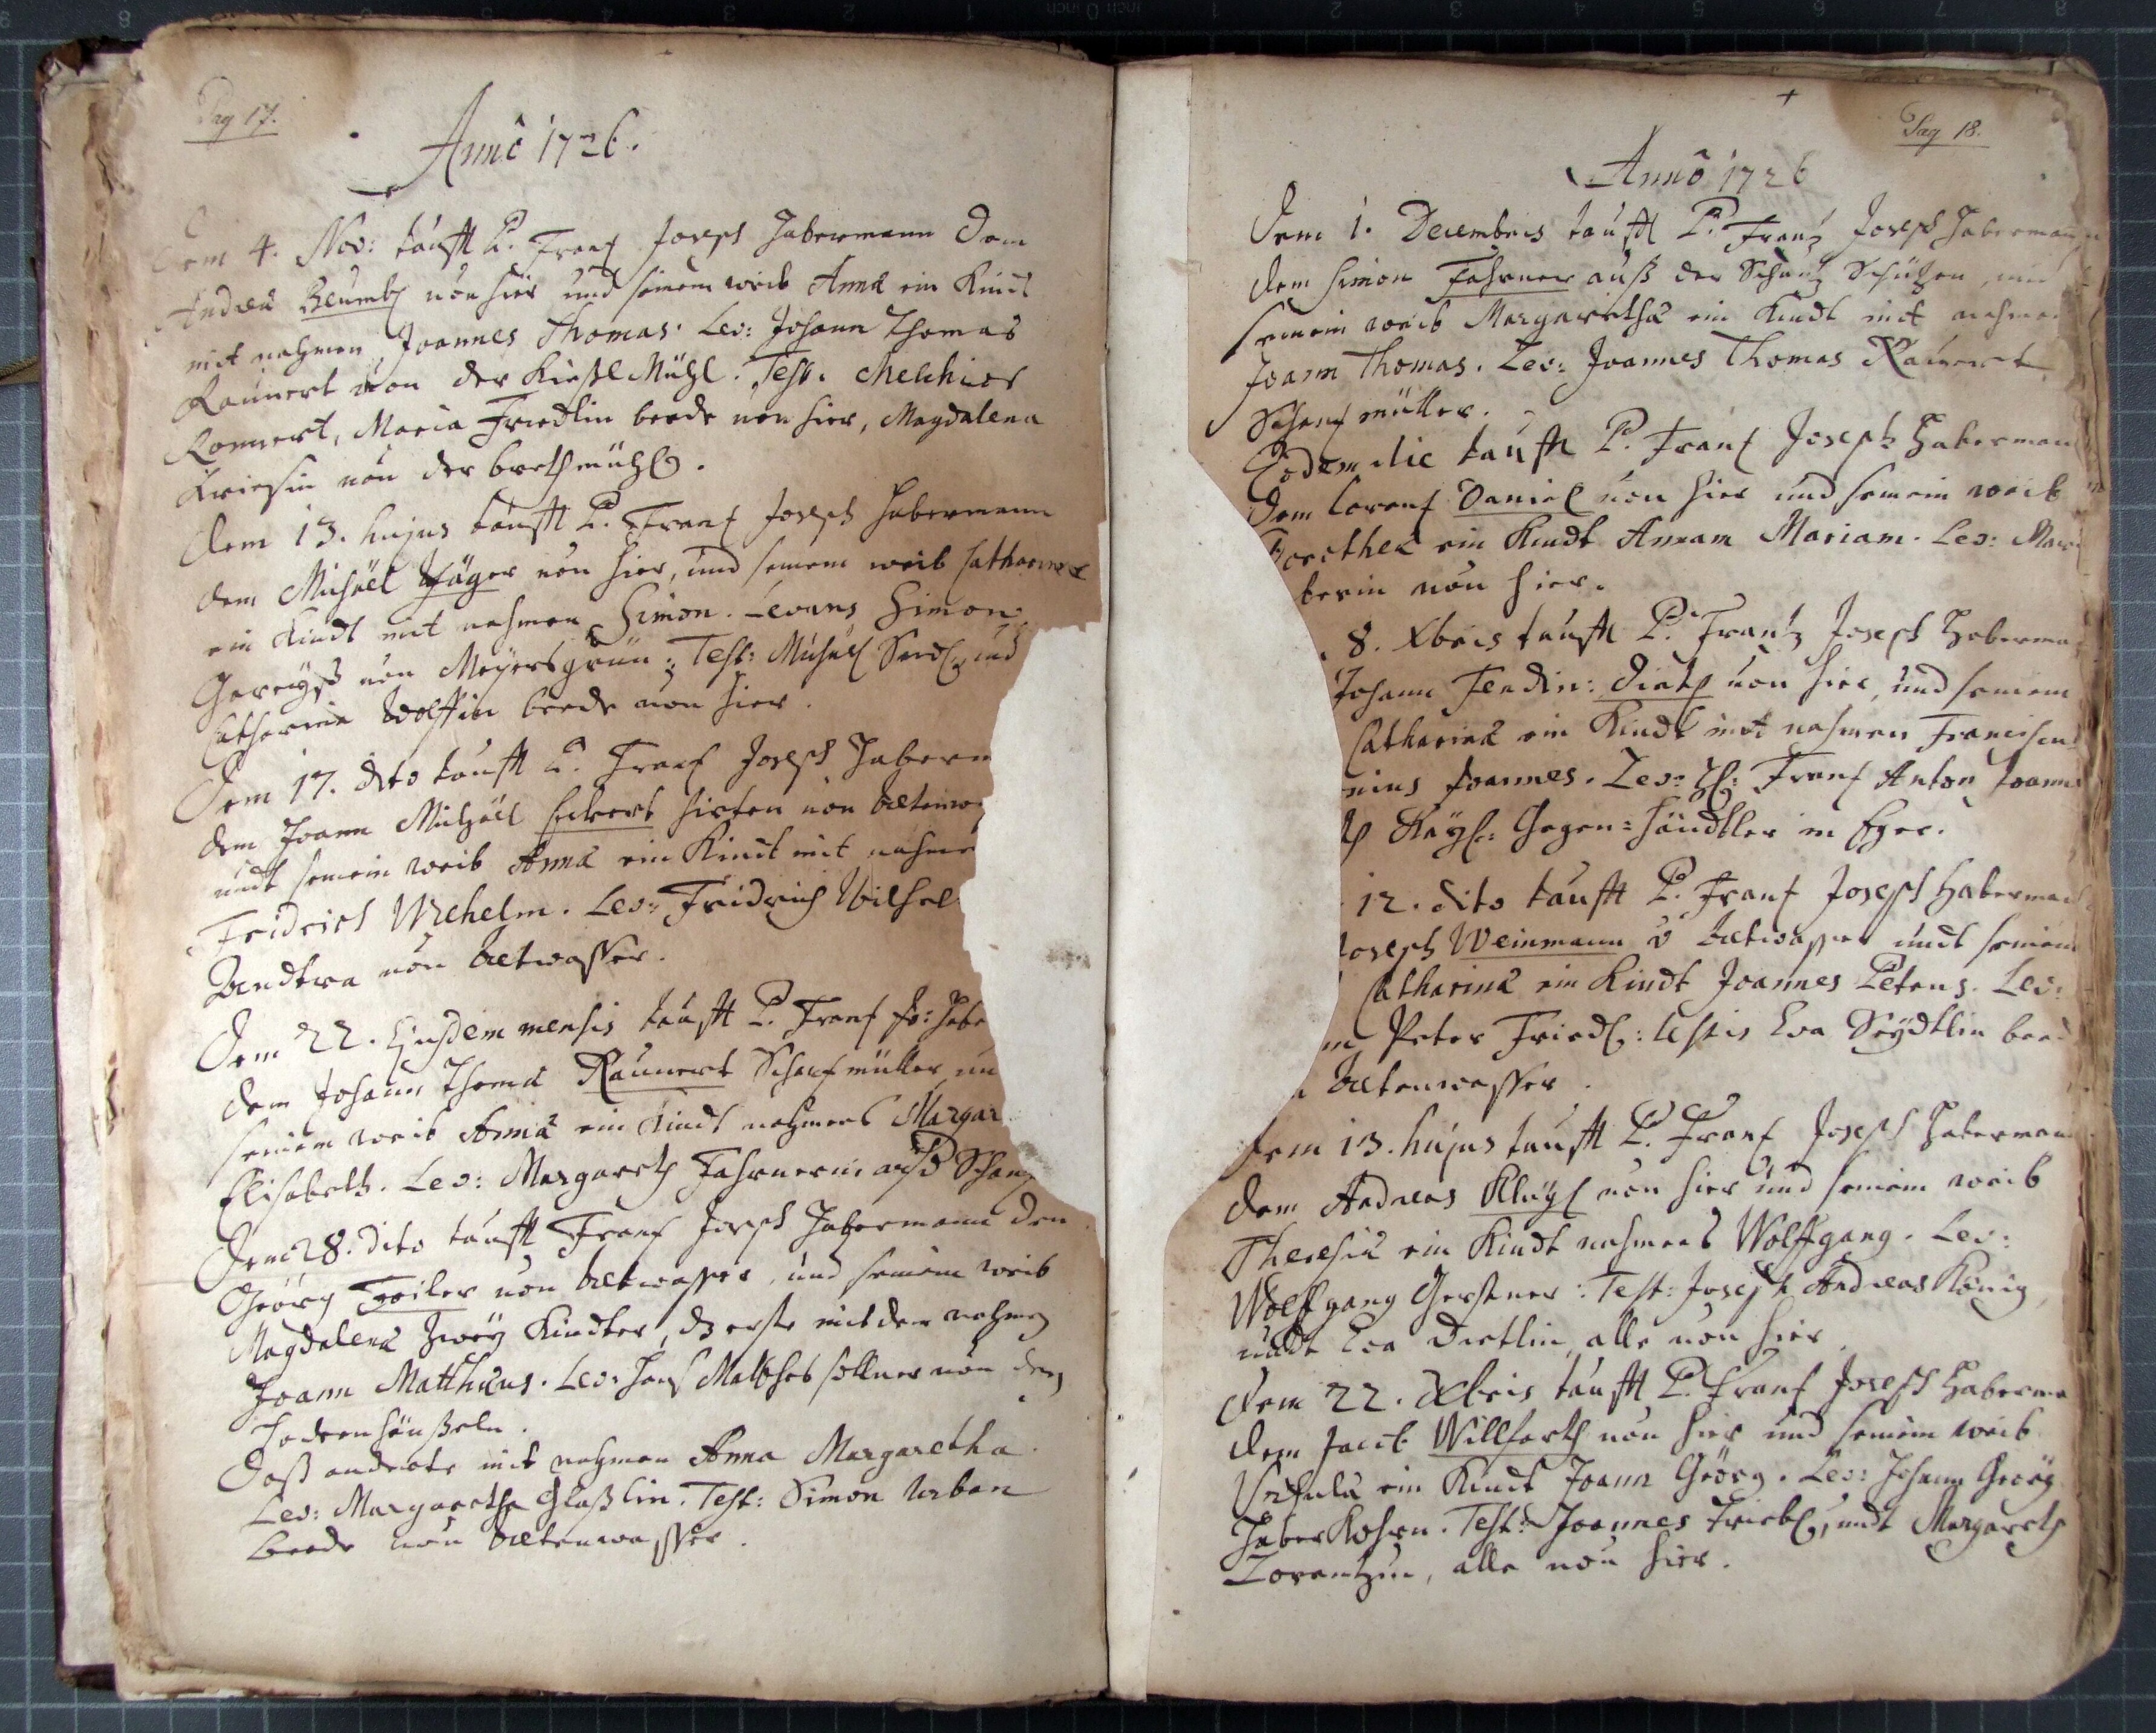 Pag 17.
Anno 1726.
Dem 4. Nov: taufft P. Frantz Joseph Habermann dem
Andrea von hier und seinem weib Anna ein Kindt
mit nahmen Joannes Thomas. Lev: Johann Thomas
Raunert von der Mühl. Test. Melchior
Ronnert, Maria Friedlin beede von hier, Magdalena
von der
Dem 13. hujus taufft P. Frantz Joseph Habermann
dem Michäel Jäger von hier, und seinem weib Catharina
ein Kindt mit nahmen Simon. Levans Simon
von Meyersgrün; Test: Michael und
Catharina Wolffin beede von hier.
Dem 17. dito taufft P. Frantz Joseph Haberm
dem Joann Michäel Eckert hirten von
undt seinem weib Anna ein Kindt mit nahme
Fridrich Wilhelm. Lev: Fridrich Wilhel
von Altwasser.
Dem 22. Ejusdem mensis taufft P. Frantz Jo: Habe
dem Johann Thoma Raunert müller un
seinem weib Anna ein Kindt nahmens Margar
Elisabeth. Lev: Margareth Fahrnerin Schantz
Dem 28. dito taufft Frantz Joseph Habermann den
Geörg Feiler von Altwasser, und seinem weib
Magdalena zweÿ Kindter, dz erste mit dem nahmen
Joann Matthæus. Lev: Hans Mathes söllner von den
Daß anderte mit nahmen Anna Margaretha.
Lev: Margaretha Glaßlin. Test: Simon Urban
beede von Altenwasser.
Pag 18.
Anno 1726
Dem 1. Decembris taufft P. Frantz Joseph Habermann
dem Simon Fahrner auß der Schantz Schützen, und
seinem weib Margaretha ein Kindt mit nahmen
Joann Thomas. Lev: Joannes Thomas Raunert
müller.
Eodem die taufft P. Frantz Joseph Haberman
Dem Lorentz Daniel von hier und seinem weib
Dorothea ein Kindt Annam Mariam. Lev: Mari
berin von hier.
8. Xbris taufft P. Frantz Joseph Haberma
Johann Ferdin: von hier, und seinem
Catharina ein Kindt mit nahmen Franciscus
nius Joannes. Lev: H: Frantz Anton Joann
Kaÿß: Gegen-händtler in Eger.
12. dito taufft P. Frantz Joseph Haberman
Joseph Weinmann v Altwasser undt seinem
Catharina ein Kindt Joannes Petrus. Lev:
Peter Friedl: testis Eva Seÿdtlin beed
Altenwasser.
Dem 13. hujus taufft P. Frantz Joseph Haberman
dem Andreas von hier und seinem weib
Theresia ein Kindt nahmens Wolffgang. Lev:
Wolffgang Gerstner: Test: Joseph Andreas König,
undt Eva Dietlin, alle von hier.
Dem 22. Xbris taufft P. Frantz Joseph Haberma
dem Jacob Willforth von hier und seinem weib
Ursula ein Kindt Joann Geörg. Lev: Johann Geörg
HaberKohrn. Test: Joannes Triebl, undt Margareth
Lorentzin, alle von hier.